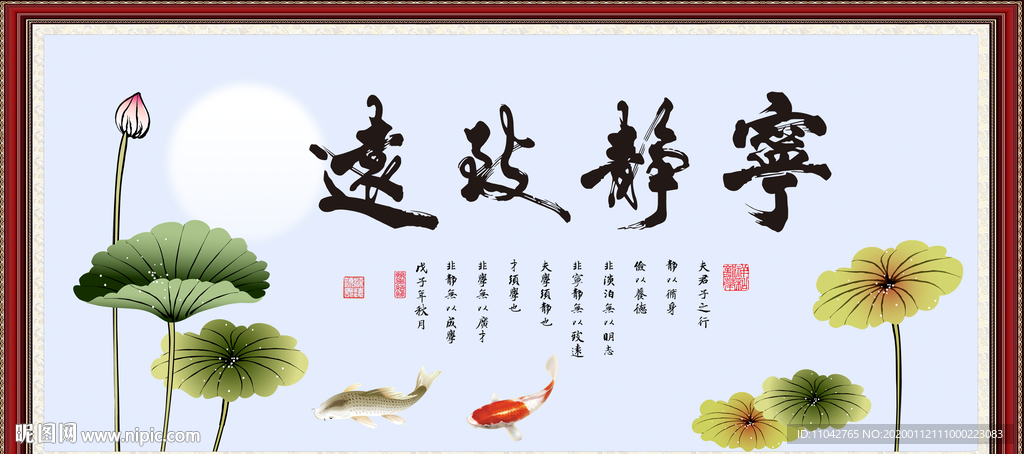 寧靜致遠
夫君子之行
靜以脩身
儉以養德
非淡泊無以明志
非寧靜無以致遠
夫學須靜也
才須學也
非學無以廣才
非靜無以成學
戊子年秋月
昵图网 www.nipic.com
ID:11042765 NO:20200112111000223083